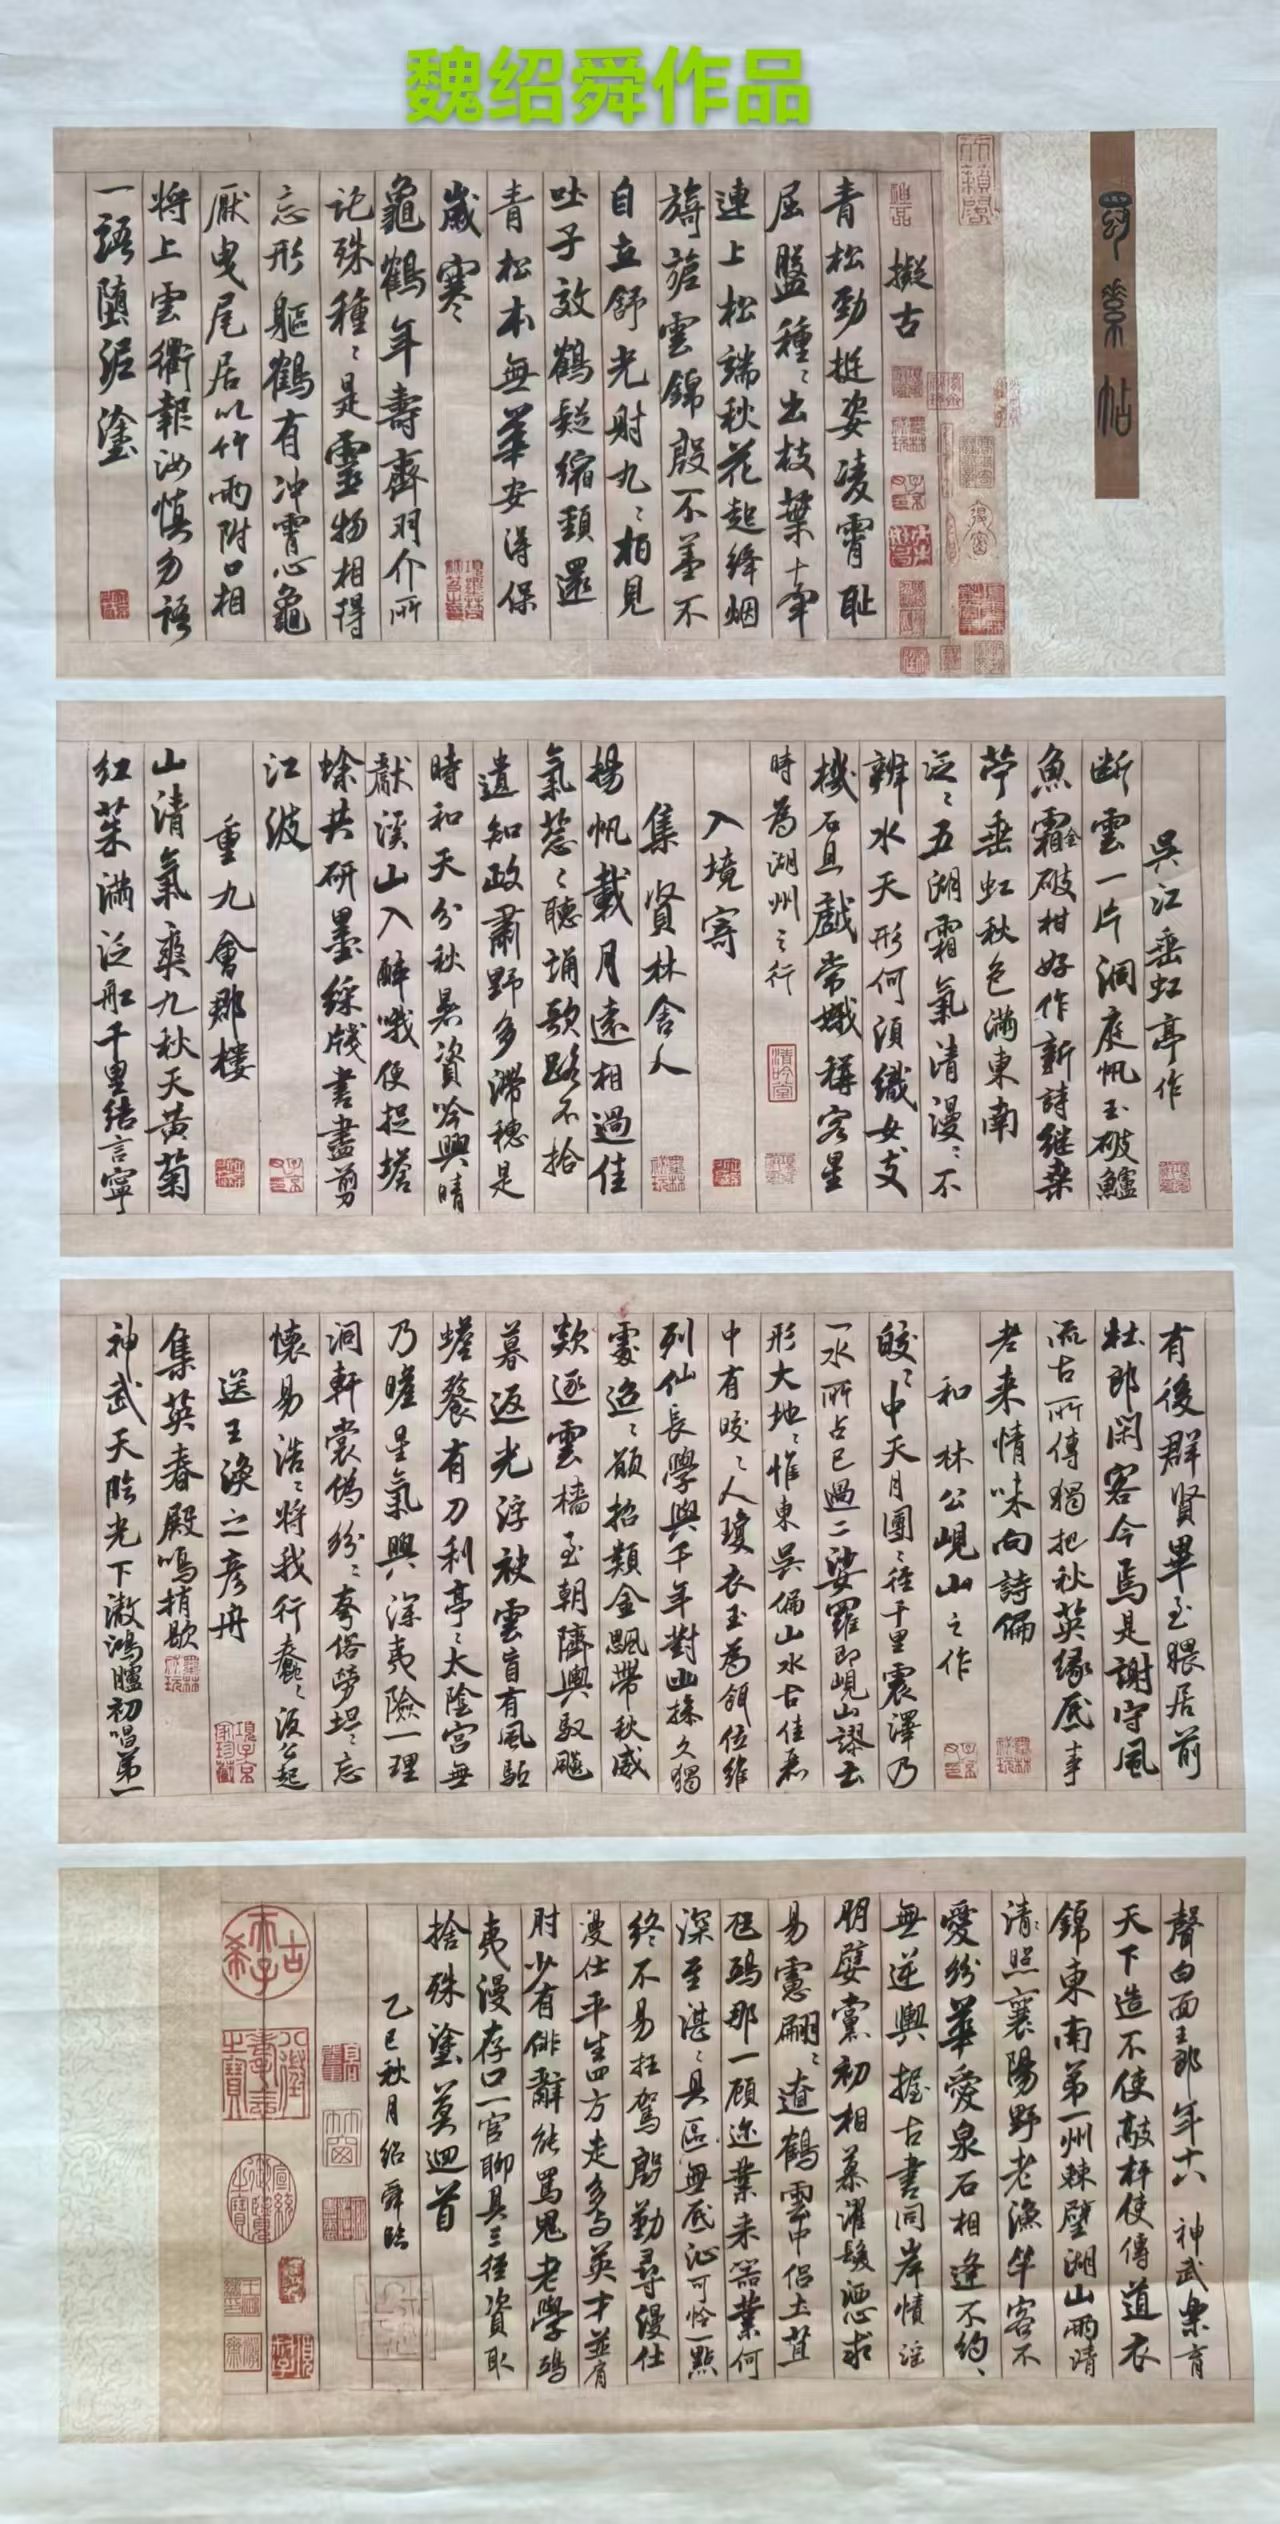 魏绍舜作品
蜀素帖
擬古
青松勁挺姿凌霄恥
屈盤種〻出枝葉牽
連上松端秋花起絳烟
旖旎雲錦殷不羞不
自立舒光射丸〻柏見
吐子效鶴疑縮頸還
青松本無華安得保
歲寒
龜鶴年壽齊羽介所
託殊種〻是靈物相得
忘形軀鶴有冲霄心龜
厭曳尾居以竹兩附口相
將上雲衢報汝慎勿語
一語堕泥塗
吳江垂虹亭作
断雲一片洞庭帆玉破鱸
魚霜金破柑好作新詩継桑
苧垂虹秋色滿東南
泛〻五湖霜氣清漫〻不
辨水天形何須織女支
機石且戲常娥稱客星
時為湖州之行
入境寄
集賢林舍人
揚帆載月遠相過佳
氣葱〻聽誦歌路不拾
遺知政肅野多滯穗是
時和天分秋暑資吟興晴
獻溪山入醉哦便捉蟾
蜍共研墨綵牋書盡剪
江波
重九會郡樓
山清氣爽九秋天黄菊
紅茱滿泛船千里結言寧
有後群賢畢至猥居前
杜郎閑客今焉是謝守風
流古所傳獨把秋英緣底事
老来情味向詩偏
和林公峴山之作
皎〻中天月團〻徑千里震澤乃
一水所占已過二娑羅即峴山謬云
形大地〻惟東吳偏山水古佳麗
中有皎〻人瓊衣玉為餌位維
列仙長學與千年對幽操久獨
處迢〻願招類金颷帶秋威
欻逐雲檣至朝隮輿馭飈
暮返光浮袂雲盲有風駈
蟾餮有刀利亭〻太陰宫無
乃瞻星氣興深夷險一理
洞軒裳偽紛〻夸俗勞坦〻忘
懷易浩〻將我行蠢〻須公起
送王渙之彦舟
集英春殿鳴捎歇
神武天臨光下澈鴻臚初唱第一
聲白面王郎年十八神武樂育
天下造不使敲枰使傳道衣
錦東南第一州棘璧湖山兩清
清照襄陽野老漁竿客不
愛紛華愛泉石相逢不約〻
無逆輿握古書同岸幘淫
朋嬖黨初相慕濯髮洒心求
易慮翩〻遼鶴雲中侣土苴
尫鵄那一顧迩業未器業何
深至湛〻具區無底沚可怜一點
終不易枉駕殷勤尋漫仕
漫仕平生四方走多与英才並肩
肘少有俳辭能罵鬼老學鴟
夷漫存口一官聊具三徑資取
捨殊塗莫迴首
乙巳秋月绍舜臨